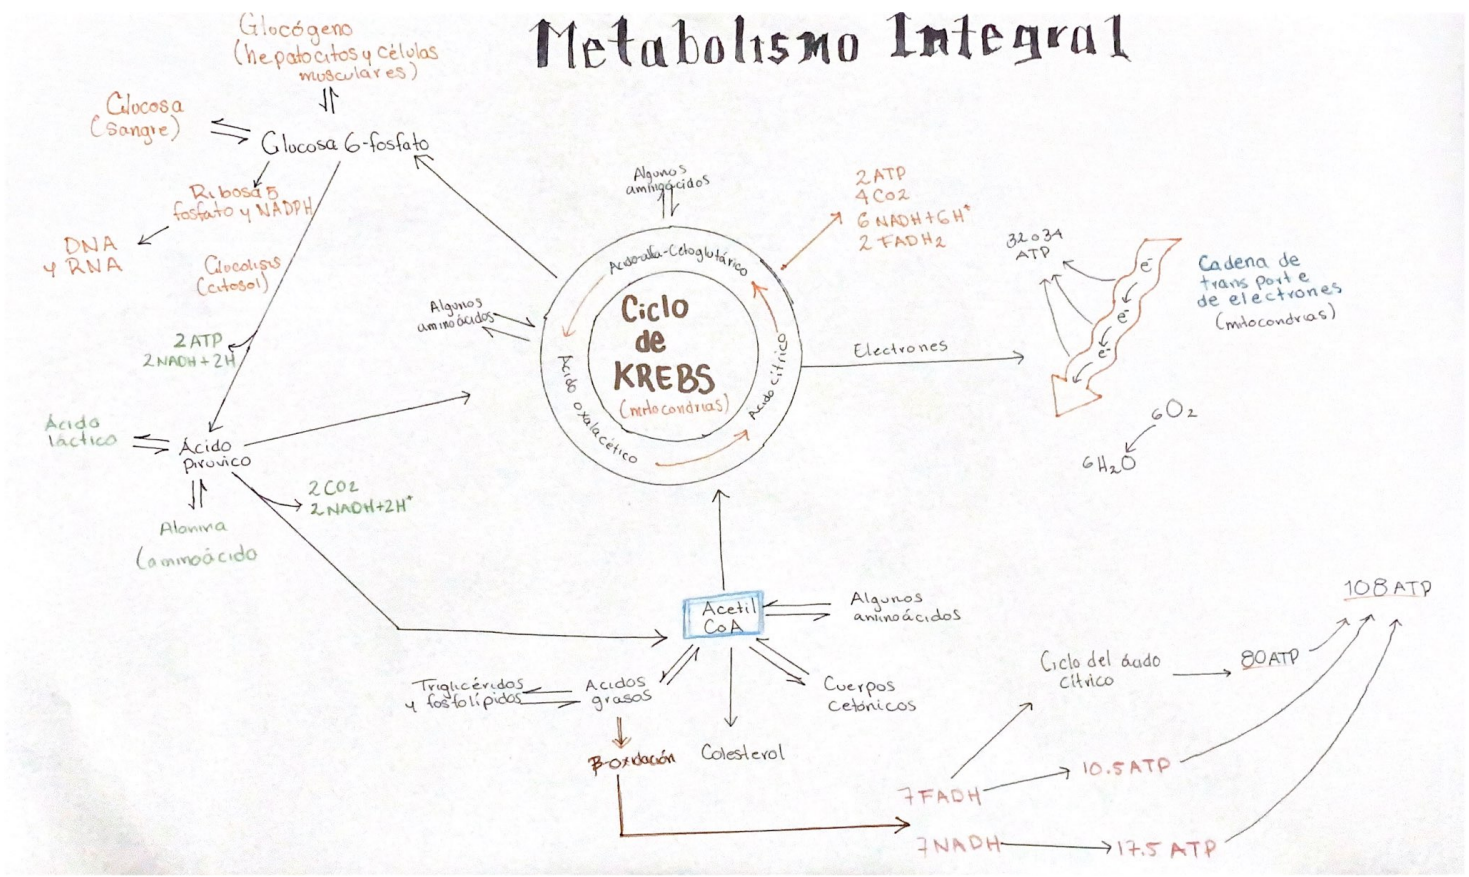 Metabolismo Integral
Glucógeno
(hepatocitos y células
musculares)
Glucosa
(sangre)
Glucosa 6-fosfato
Ribosa 5
fosfato y NADPH
DNA
y RNA
Glucolisis
(citosol)
2 ATP
2 NADH + 2H
Ácido
láctico
Ácido
piruvico
Alanina
(aminoácido
2 CO2
2 NADH+2H⁺
Algunos
aminoácidos
Algunos
aminoácidos
Acido-alfa-Cetoglutárico
Ácido oxalacético
Acido cítrico
Ciclo
de
KREBS
(mitocondrias)
2 ATP
4 CO2
6 NADH+6H⁺
2 FADH2
Electrones
32 o 34
ATP
e⁻
e⁻
e⁻
Cadena de
transporte
de electrones
(mitocondrias)
6O2
6H2O
Acetil
CoA
Algunos
aminoácidos
Triglicéridos
y fosfolípidos
Acidos
grasos
Cuerpos
cetónicos
β-oxidación
Colesterol
Ciclo del ácido
cítrico
80 ATP
108 ATP
7 FADH
10.5 ATP
7 NADH
17.5 ATP